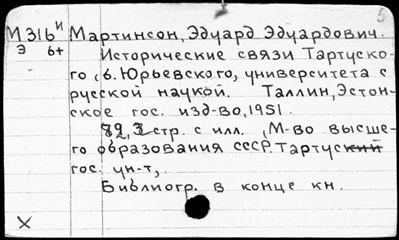 М316 и Мартинсон, Эдуард Эдуардович.
Э 6+
Исторические связи Тартуско-
го, б. Юрьевского, университета с
русской наукой. Таллин, Эстон-
ское гос. изд-во, 1951.
82, 3 стр. с илл. (М-во высше-
го образования СССР. Тартуский
гос. ун-т,
Библиогр. в конце кн.
X
5